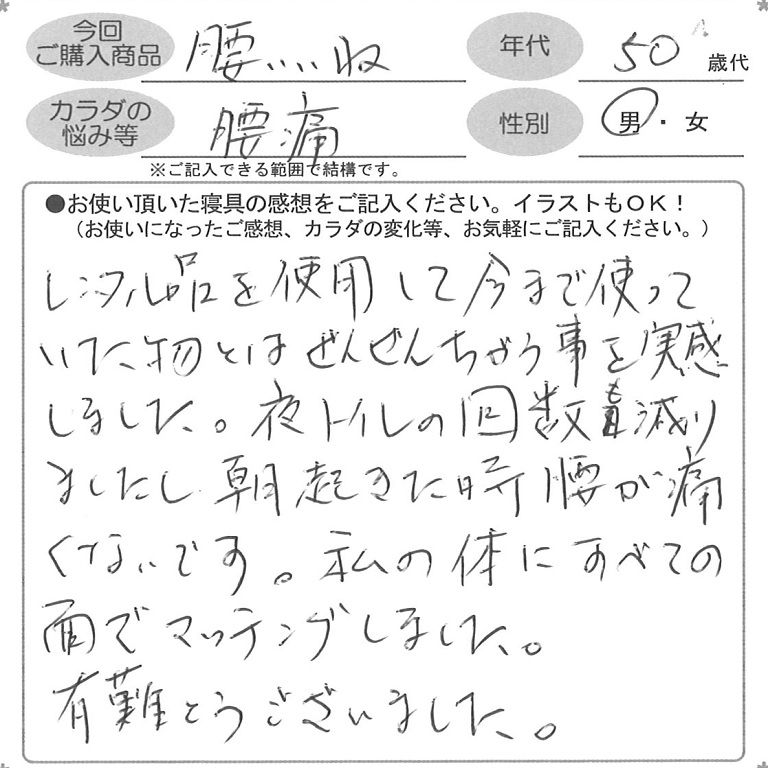 今回
ご購入商品
腰いいね
年代
50 歳代
カラダの
悩み等
腰痛
性別
男・女
※ご記入できる範囲で結構です。
●お使い頂いた寝具の感想をご記入ください。イラストもOK！
（お使いになったご感想、カラダの変化等、お気軽にご記入ください。）
レンタル品を使用して今まで使って
いた物とはぜんぜんちがう事を実感
しました。夜トイレの回数も減り
ましたし朝起きた時腰が痛
くないです。私の体にすべての
面でマッチングしました。
有難とうございました。